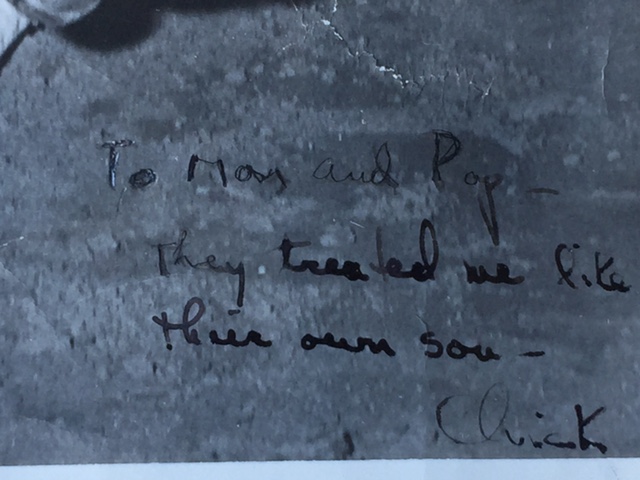 To Mom and Pop –
They treated me like
thier own son –
Chick